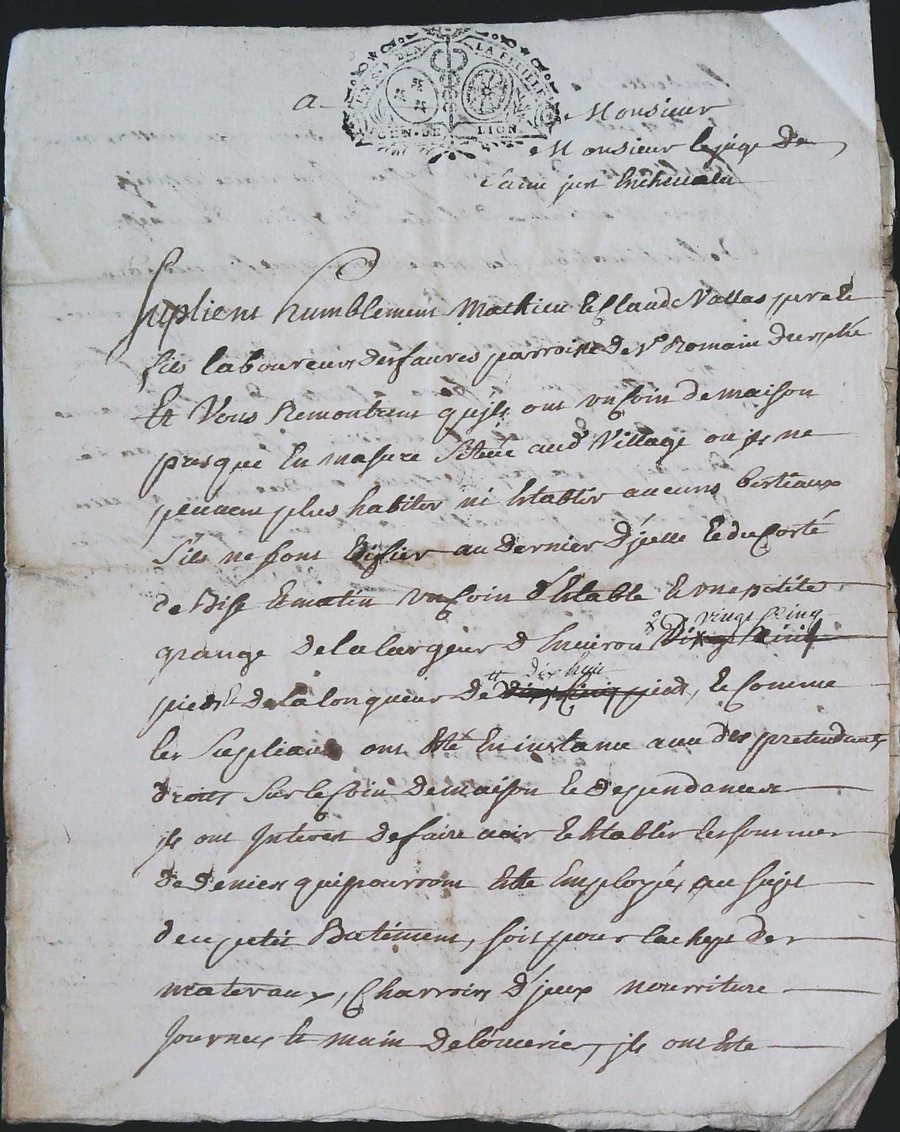 LA FEUILLE
GEN. DE LION
a Monsieur
Monsieur le juge de
Saint just Enchevalu
Suplient humblement Mathieu et Claude Vallas pere et
fils laboureurs des faures parroisse de St Romain
Et Vous Remontrent qu'ils ont un Coin de maison
presque En masure Située aud Village ou ils ne
peuvent plus habiter ni Establir aucuns bestiaux
S'ils ne font Edifier au dernier d'jcelle et du Costé
de Bise Et matin un Coin d'Estable Et une petite
grange de la largeur d'Environ vingt Cinq
pieds et de la longueur de dix huit pieds, Et Comme
les Supliants ont Esté En instance avec des pretendants
droits Sur le Coin de maison Et dependances
ils ont Interest de faire voir Et Establir les sommes
de deniers qui pourront Estre Employés au sujet
de ce petit Batiment, soit pour lachept des
materaux, Charrois d'jceux nourriture
Journées Et main de l'ouvrier, ils ont Esté